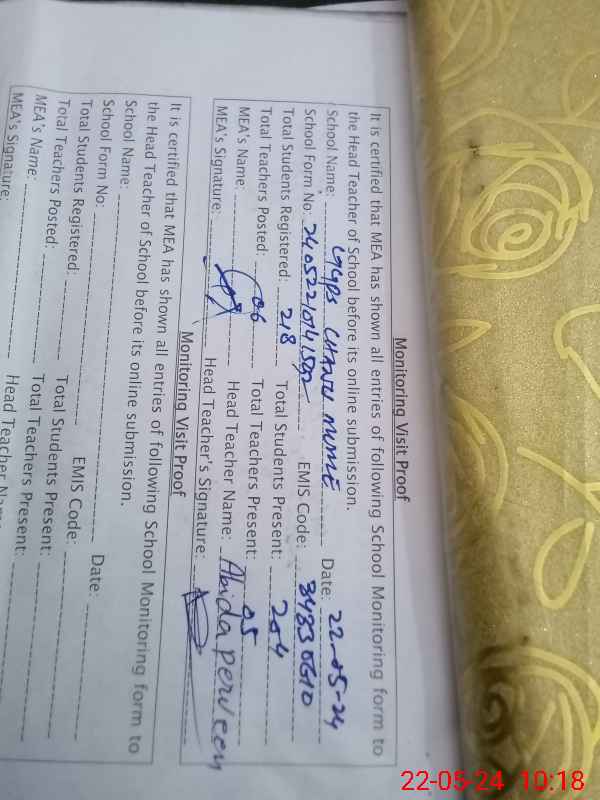 Monitoring Visit Proof
It is certified that MEA has shown all entries of following School Monitoring form to
the Head Teacher of School before its online submission.
School Name: GGPS CHANU MOME Date: 22-05-24
School Form No: EMIS Code: 34330610
Total Students Registered: 218 Total Students Present: 204
Total Teachers Posted: 06 Total Teachers Present: 05
MEA's Name: Head Teacher Name: Abida perveen
MEA's Signature: Head Teacher's Signature:
Monitoring Visit Proof
It is certified that MEA has shown all entries of following School Monitoring form to
the Head Teacher of School before its online submission.
School Name: Date:
School Form No: EMIS Code:
Total Students Registered: Total Students Present:
Total Teachers Posted: Total Teachers Present:
MEA's Name: Head Teacher Name
MEA's Signature:
22-05-24 10:18